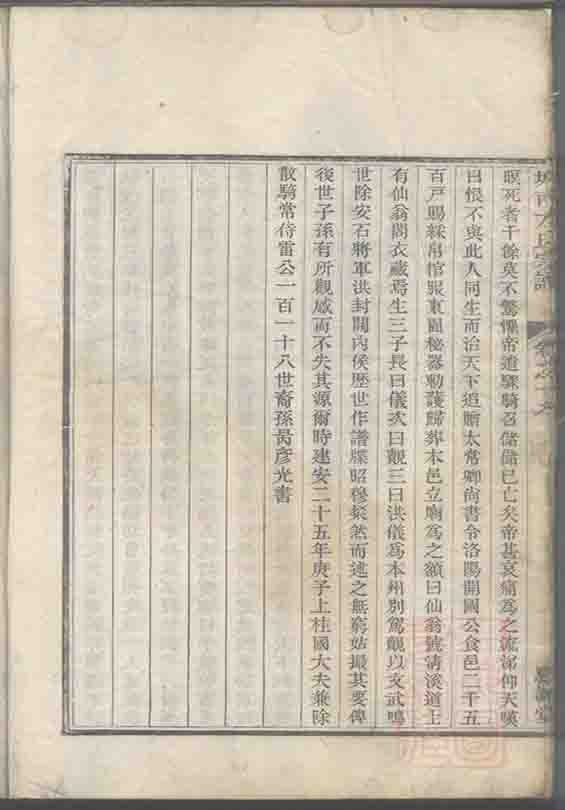 瞑死者千餘莫不驚慄帝遣驛騎召儲儲已亡矣帝甚哀痛為之流涕仰天嘆
曰恨不與此人同生而治天下追贈太常卿尚書令洛陽開國公食邑二千五
百戸賜綵帛棺槨東園秘器勅護歸葬本邑立廟為之額曰仙翁號清溪道王
有仙翁閣衣藏焉生三子長曰儀次曰觀三曰洪儀為本州別駕觀以文武鳴
世除安石將軍洪封關內侯歴世作譜牒昭穆粲然而述之無窮姑撮其要俾
後世子孫有所觀感而不失其源爾時建安二十五年庚子上柱國大夫兼除
散騎常侍雷公一百一十八世裔孫昺彥光書